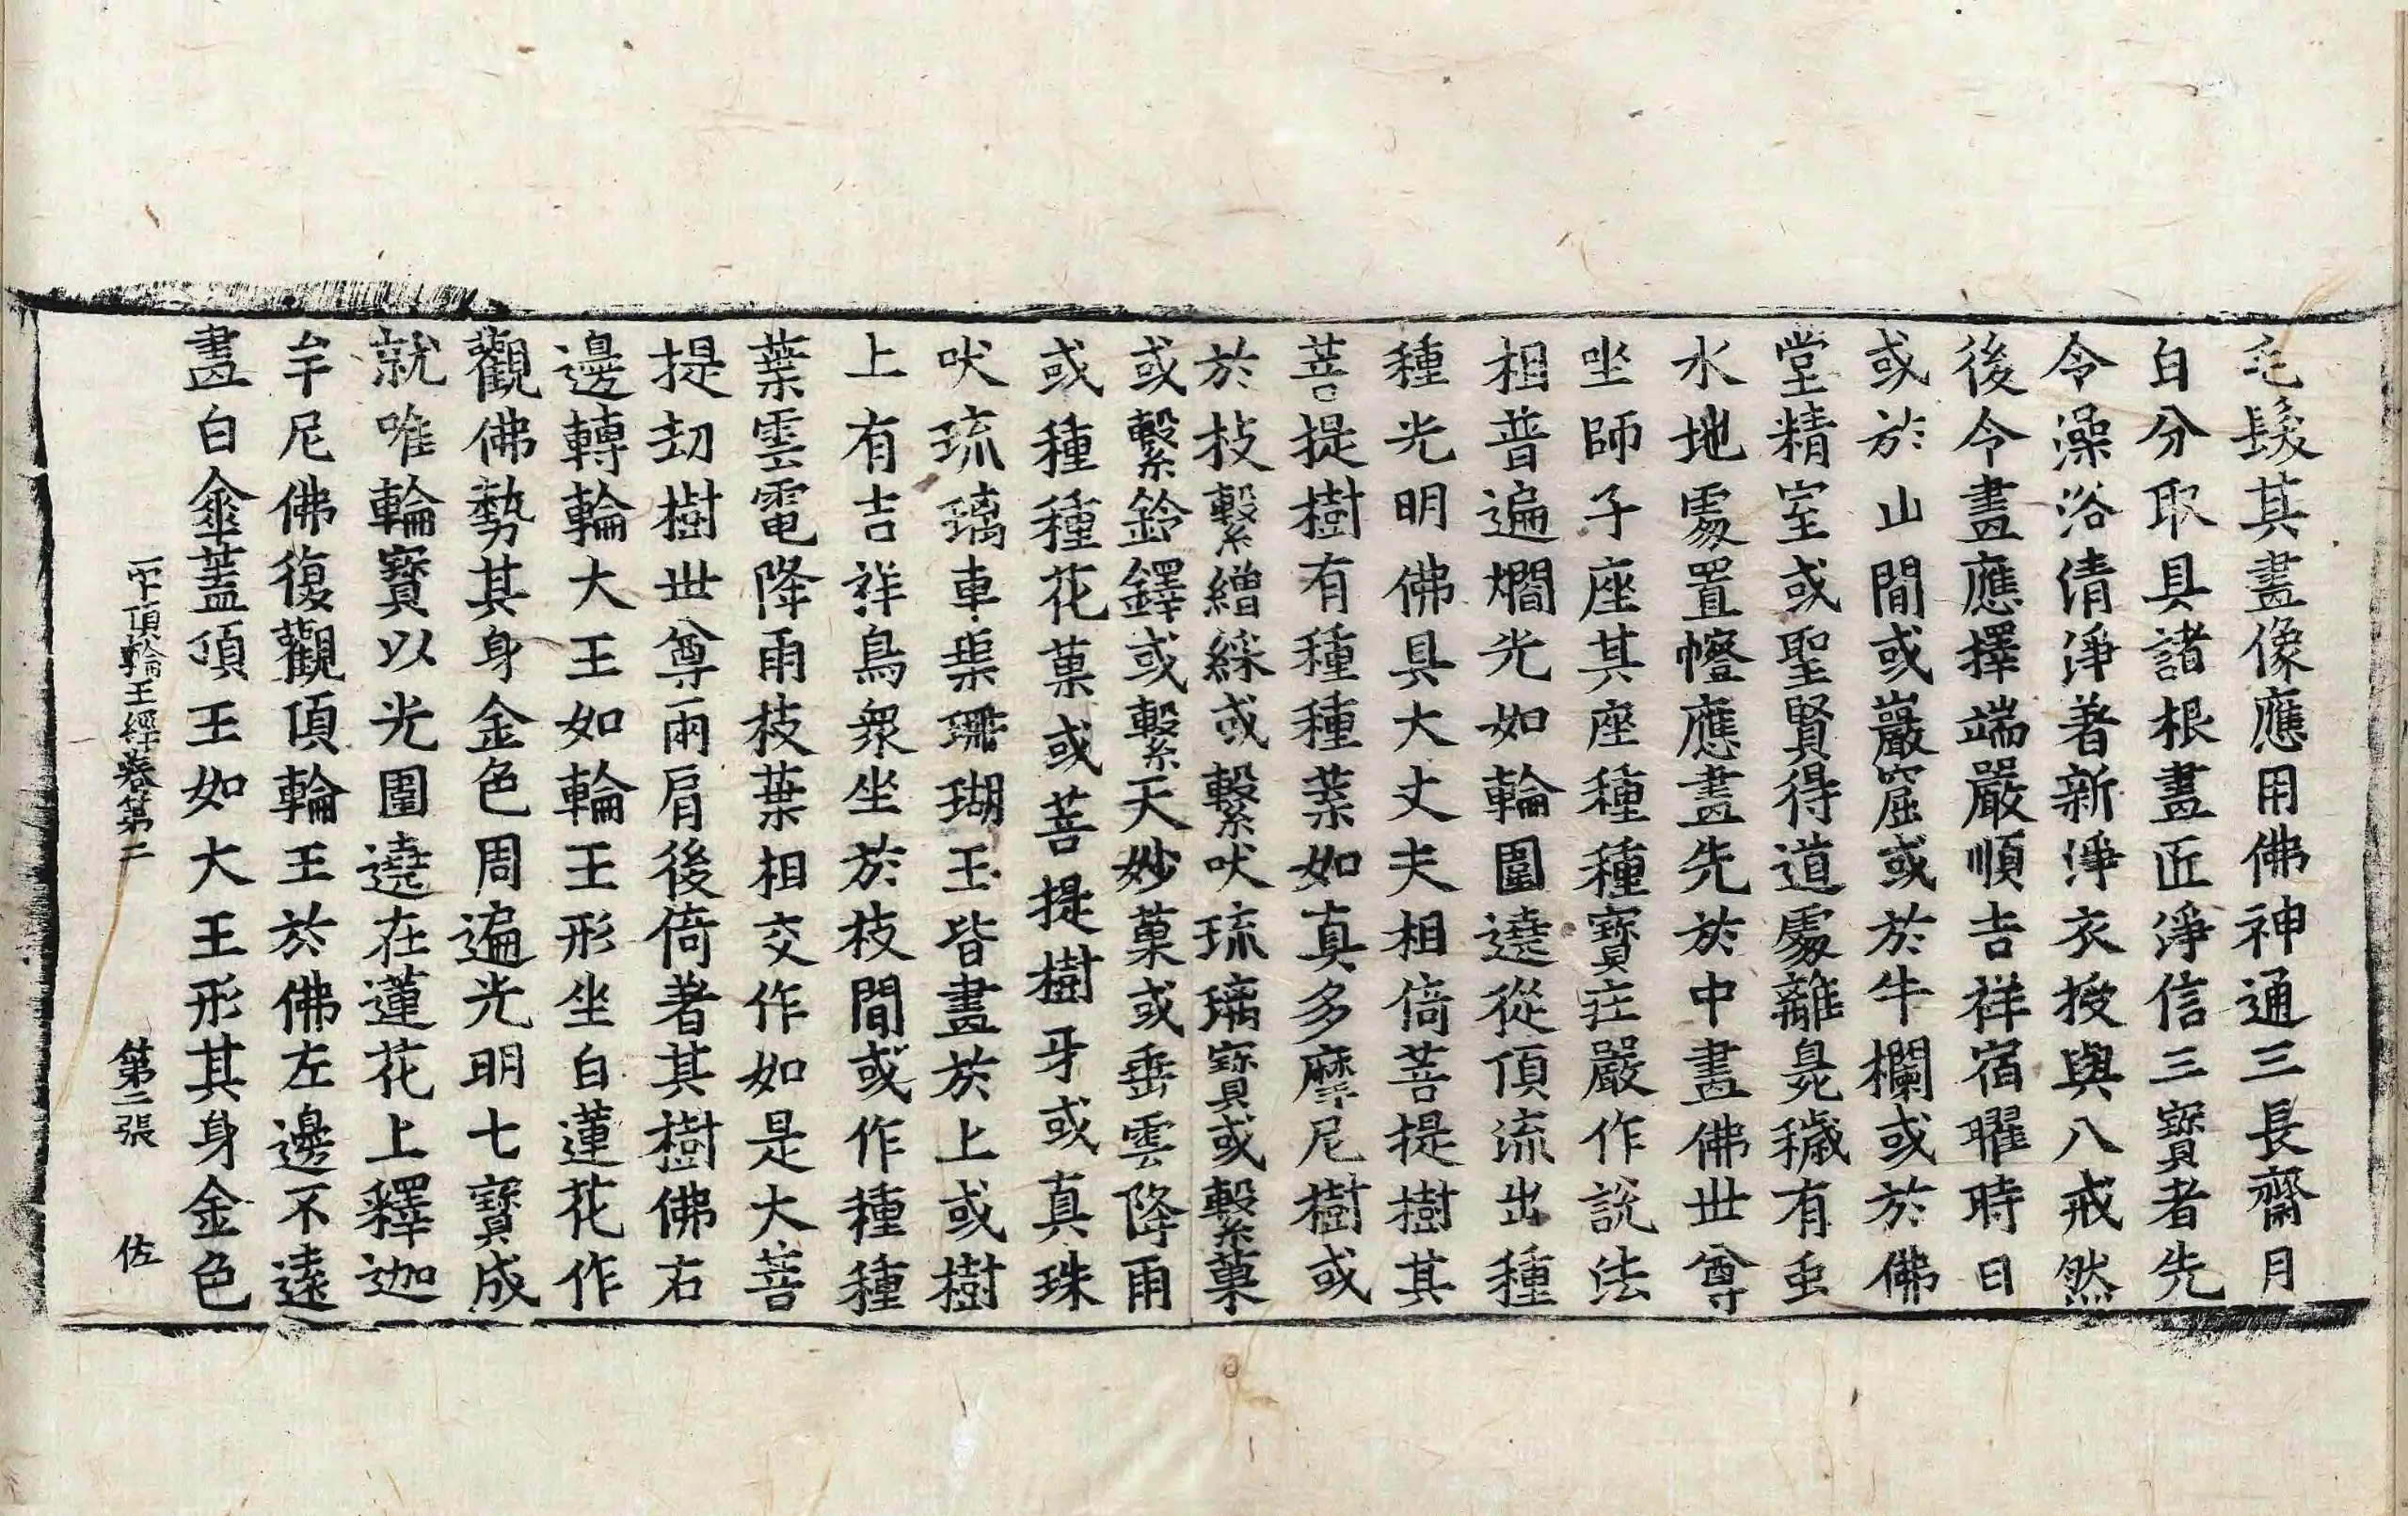 毛髮其畫像應用佛神通三長齋月
白分取具諸根畫匠淨信三寶者先
令澡浴清淨著新淨衣授與八戒然
後令畫應擇端嚴順吉祥宿曜時日
或於山間或巖窟或於牛欄或於佛
堂精室或聖賢得道處離臰穢有虫
水地處置㡧應畫先於中畫佛世尊
坐師子座其座種種寶庄嚴作說法
相普遍爓光如輪圍遶從頂流出種
種光明佛具大丈夫相倚菩提樹其
菩提樹有種種葉如真多摩尼樹或
於枝繫繒綵或繫吠琉璃寶或繫菓
或繫鈴鐸或繫天妙菓或垂雲降雨
或種種花菓或菩提樹牙或真珠
吠琉璃車𤦲珊瑚玉皆畫於上或樹
上有吉祥鳥衆坐於枝間或作種種
葉雲電降雨枝葉相交作如是大菩
提刧樹世尊兩肩後倚著其樹佛右
邊轉輪大王如輪王形坐白蓮花作
觀佛勢其身金色周遍光明七寶成
就唯輪寶以光圍遶在蓮花上釋迦
牟尼佛復觀頂輪王於佛左邊不遠
畫白傘蓋頂王如大王形其身金色
一字頂輪王經卷第二　第二張　佐